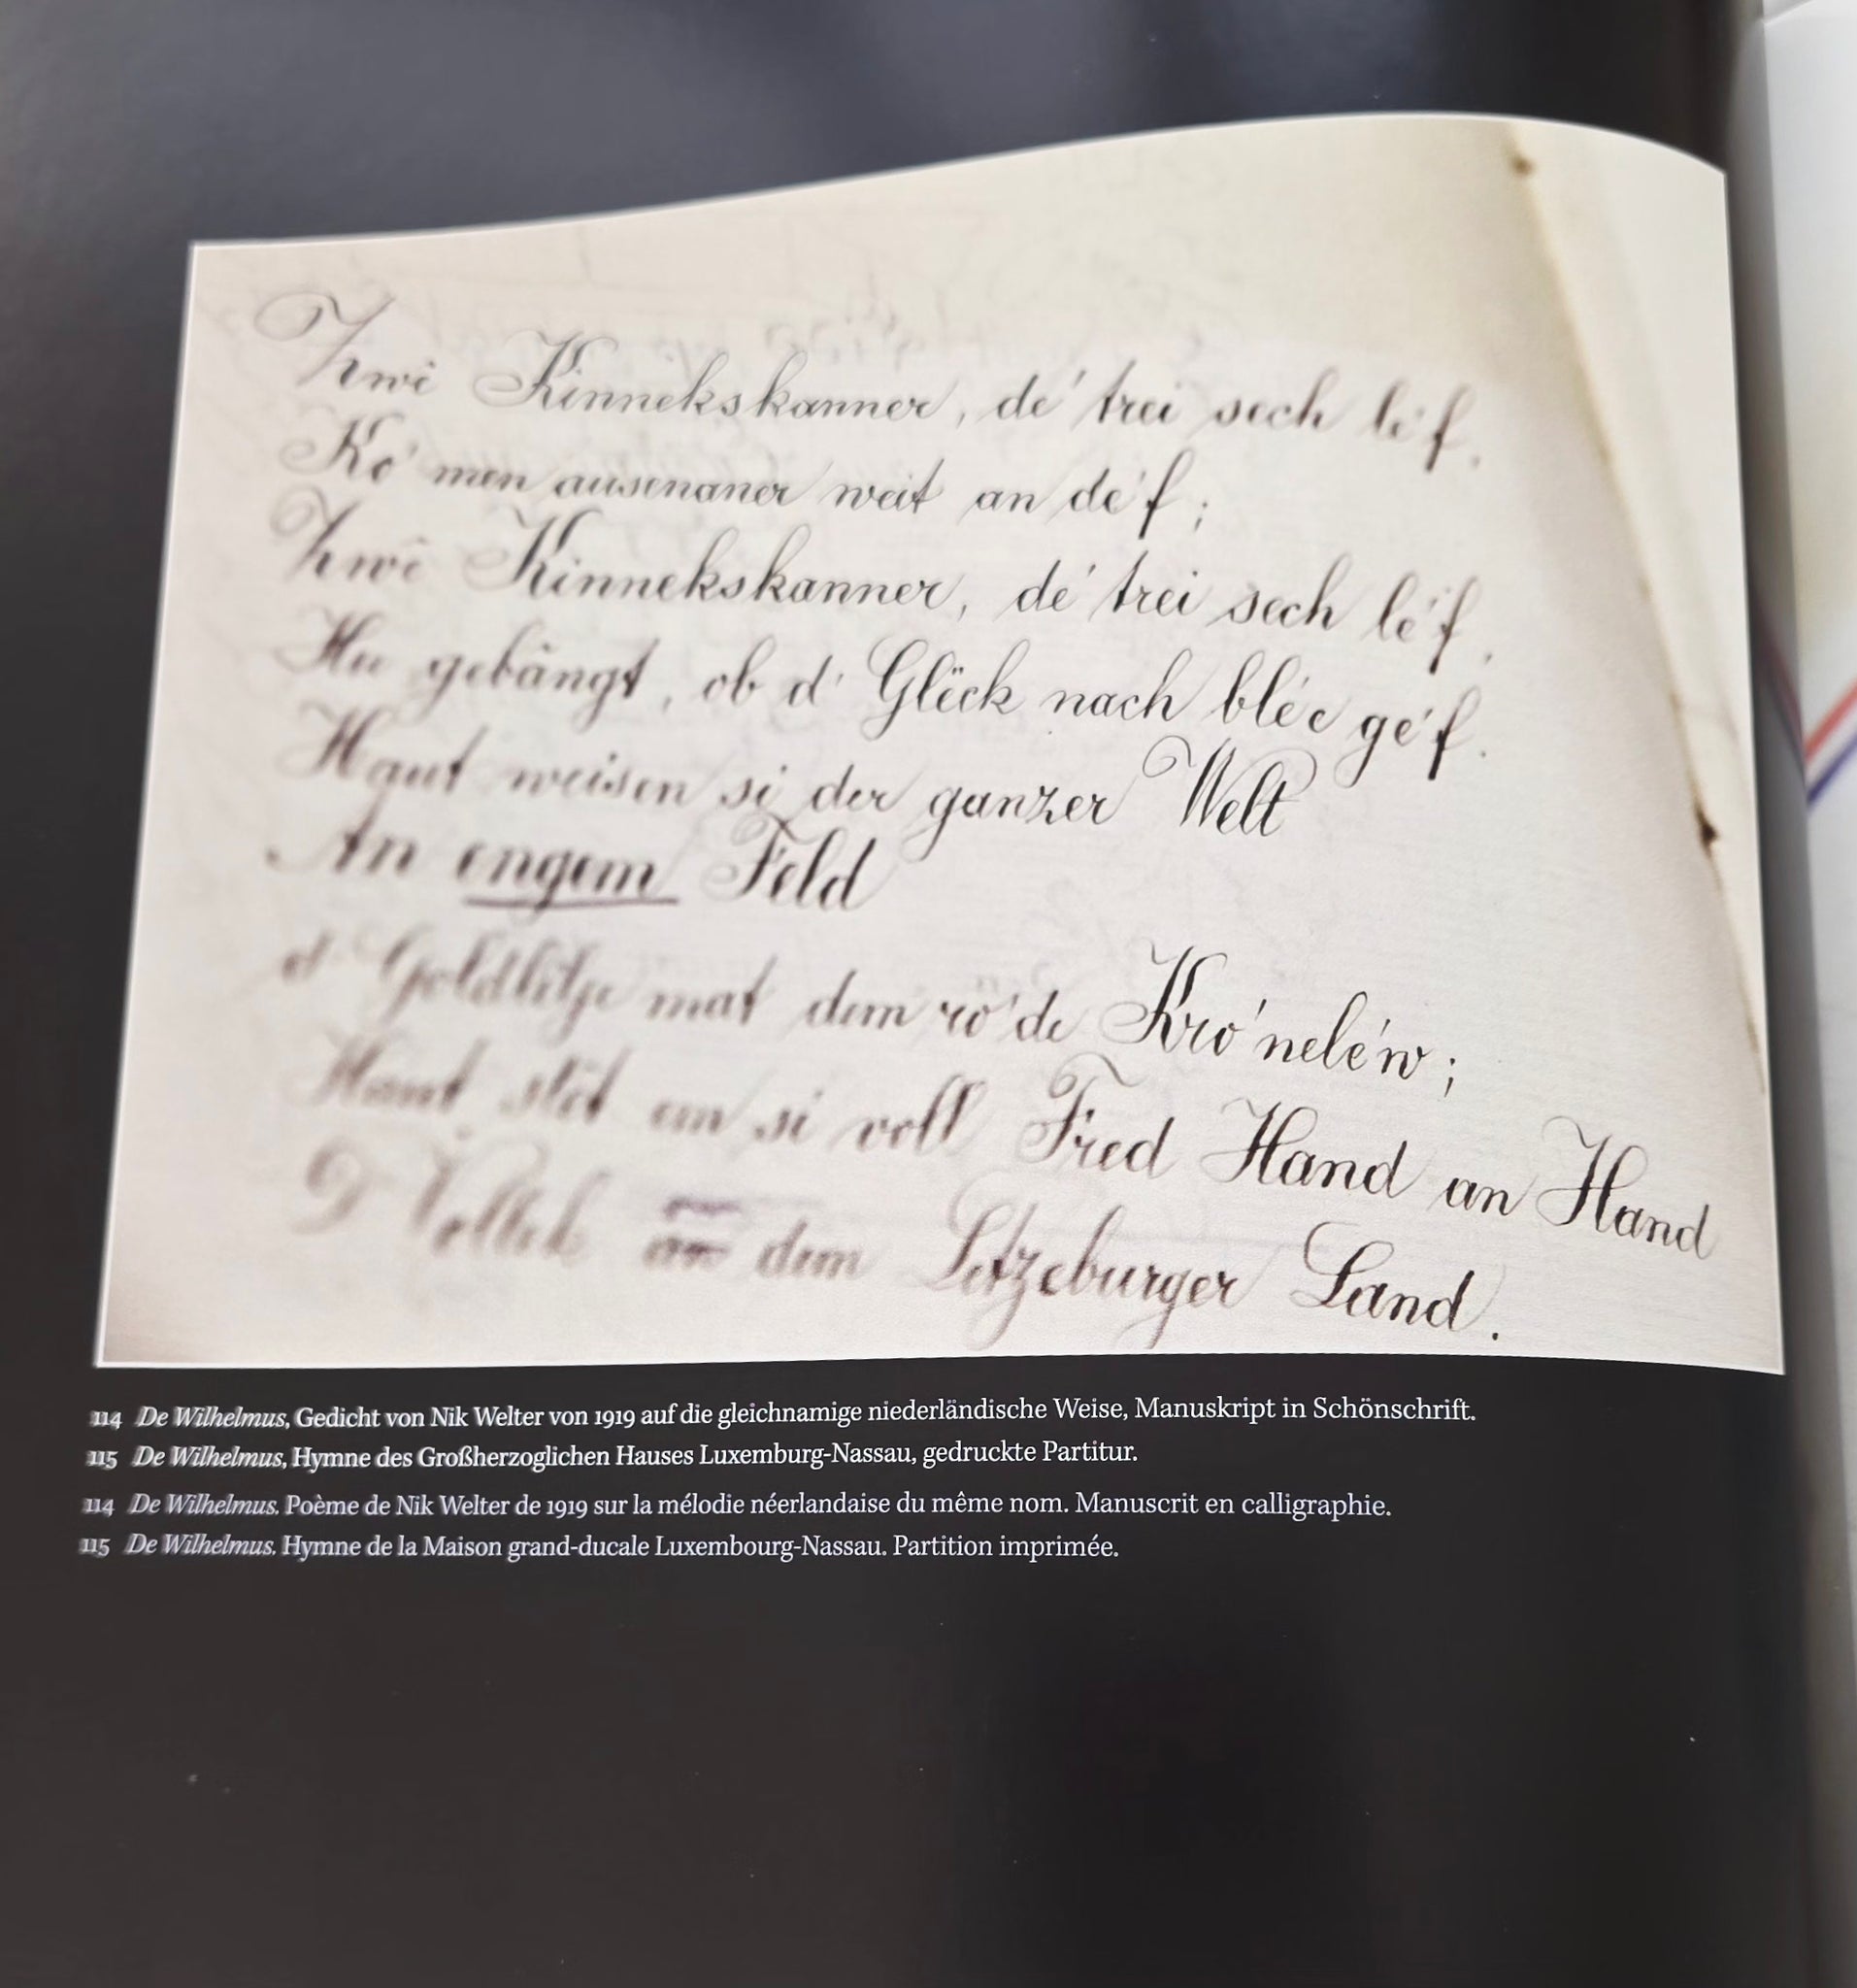 Zwê Kinnekskanner, dé trei sech lé'f,
Ko'men ausenaner weit an dé'f;
Zwê Kinnekskanner, dé trei sech lé'f,
Hu gebângt, ob d' Glëck nach blé'e gé'f.
Haut weisen si der ganzer Welt
An engem Feld
d' Goldlitze mat dem ro'de Kro'nelé'w;
Haut stêt em si voll Fred Hand an Hand
D' Vollek an dem Letzeburger Land.
114 De Wilhelmus, Gedicht von Nik Welter von 1919 auf die gleichnamige niederländische Weise, Manuskript in Schönschrift.
115 De Wilhelmus, Hymne des Großherzoglichen Hauses Luxemburg-Nassau, gedruckte Partitur.
114 De Wilhelmus. Poème de Nik Welter de 1919 sur la mélodie néerlandaise du même nom. Manuscrit en calligraphie.
115 De Wilhelmus. Hymne de la Maison grand-ducale Luxembourg-Nassau. Partition imprimée.